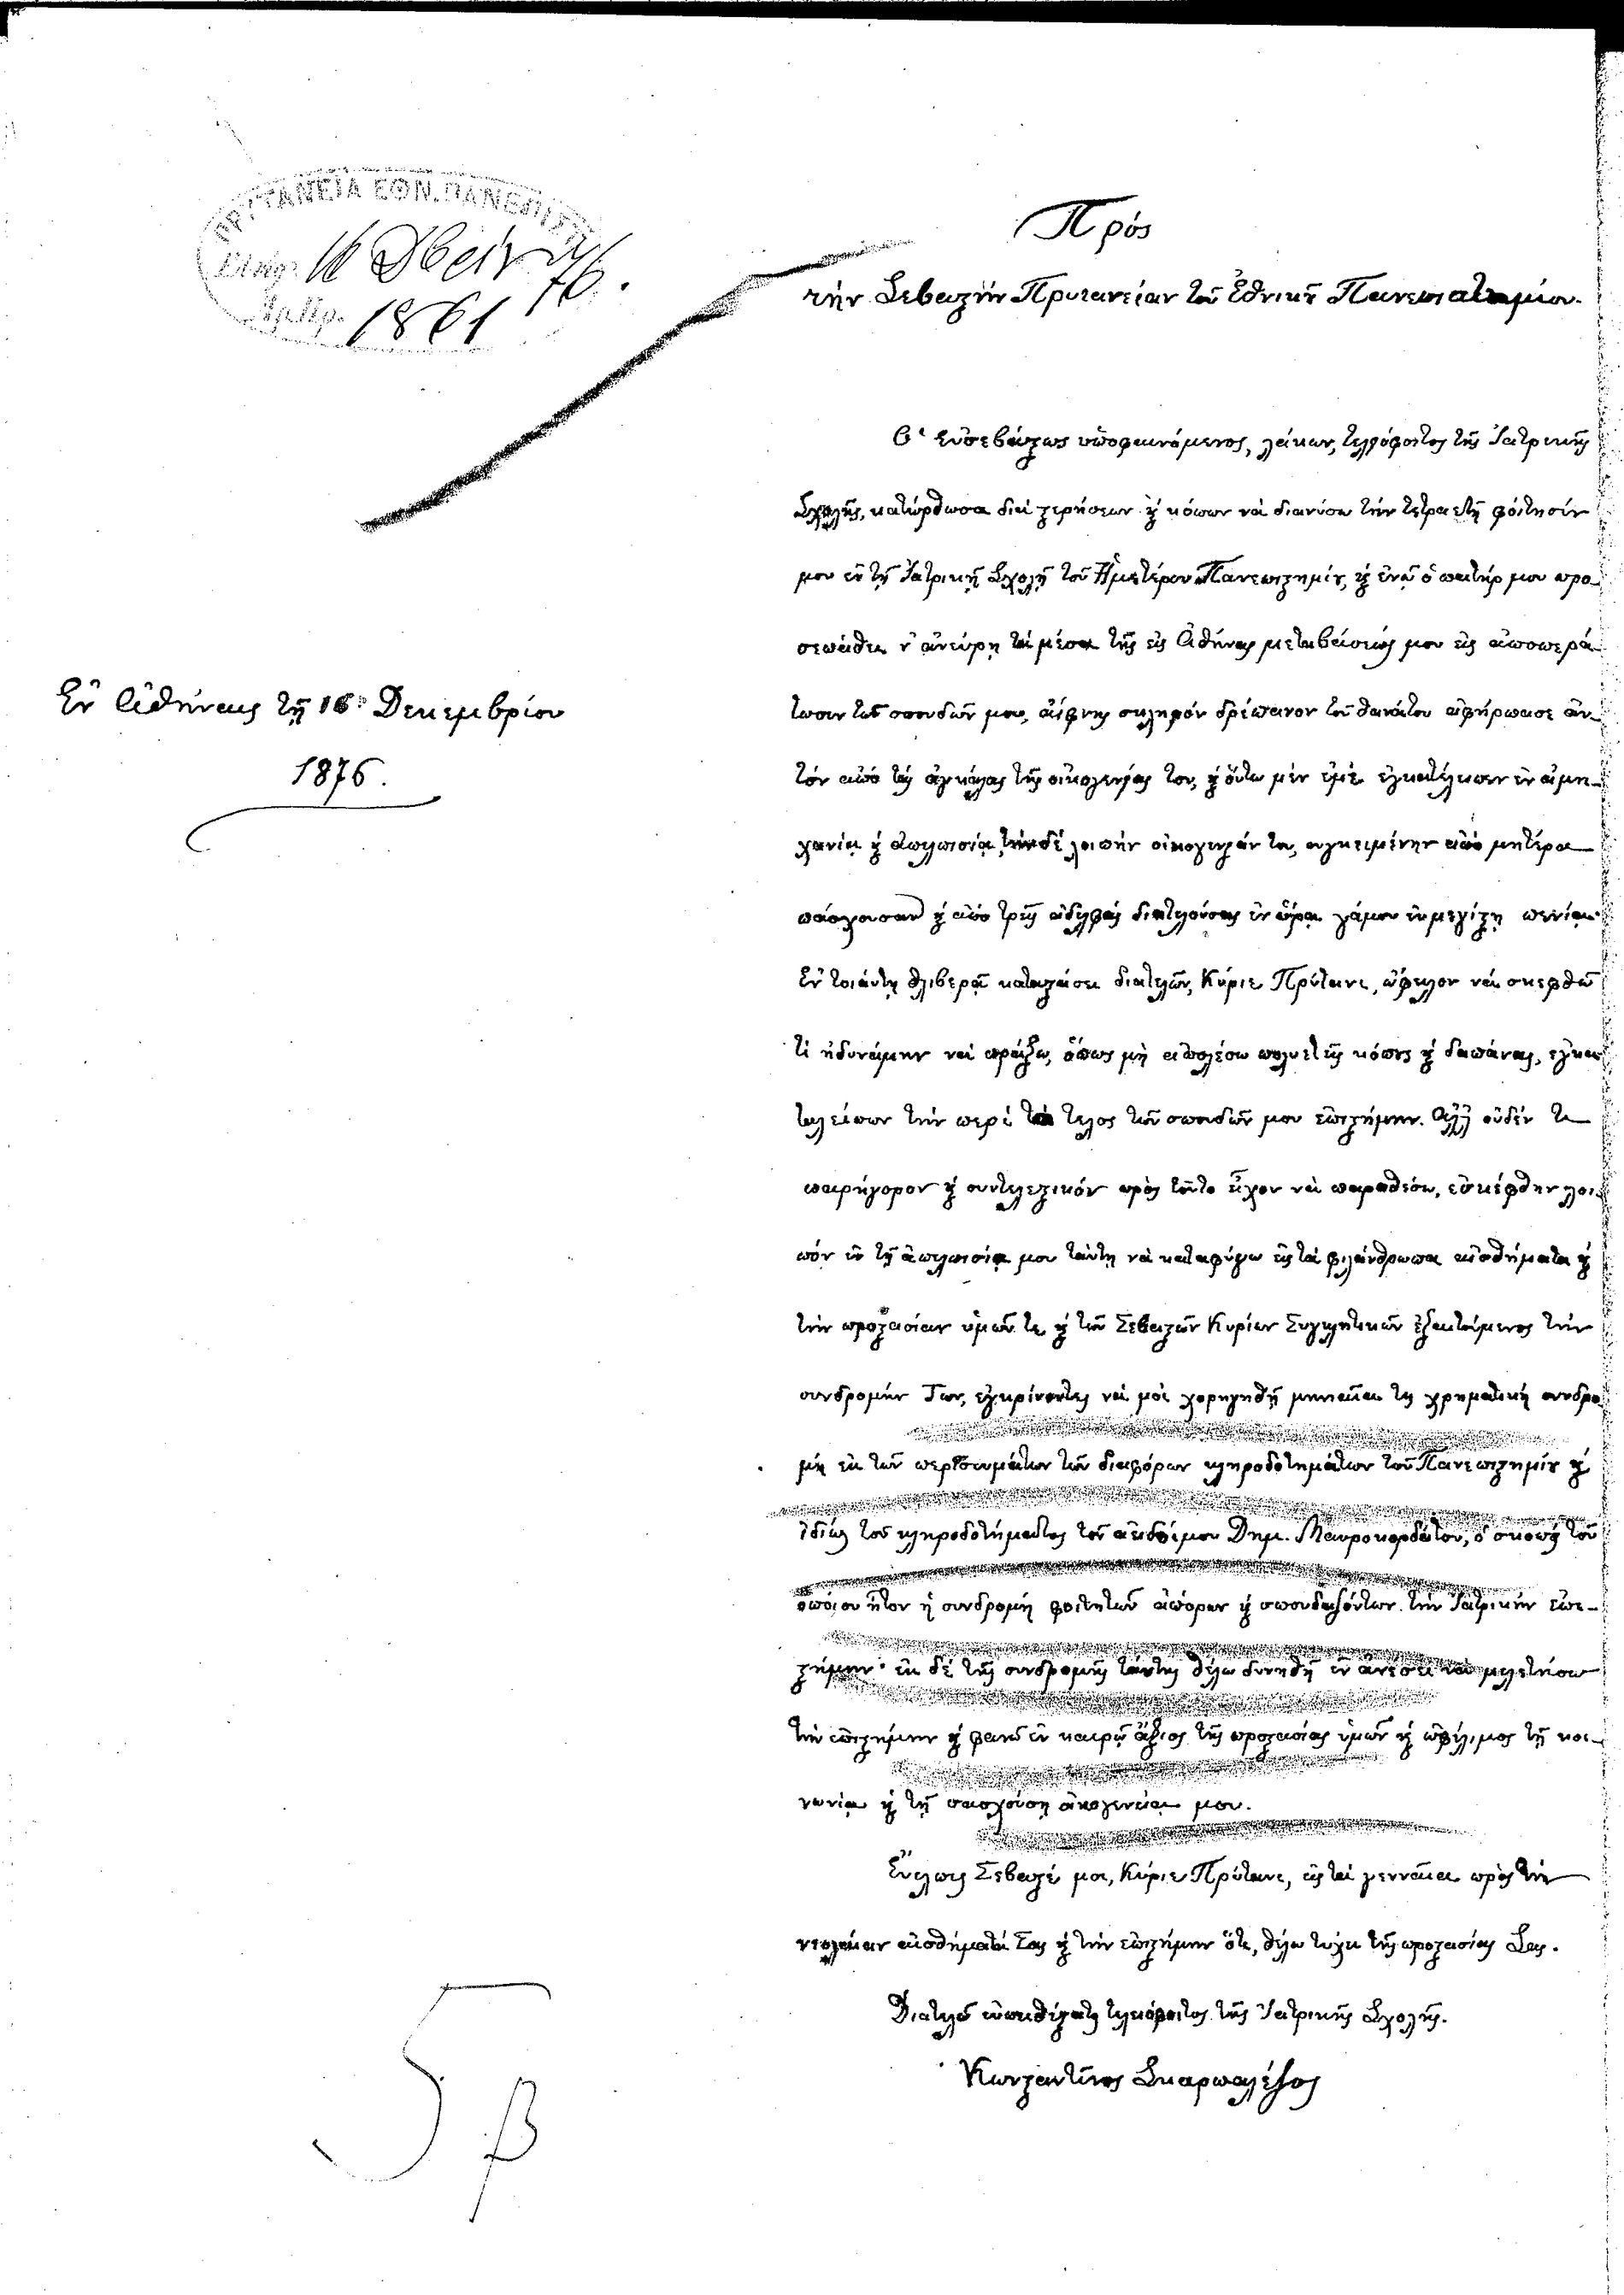 ΠΡΥΤΑΝΕΙΑ ΕΘΝ. ΠΑΝΕΠΙΣΤ
16 76.
1861
Πρὸς
τὴν Σεβαστὴν Πρυτανείαν τοῦ Ἐθνικοῦ Πανεπιστημίου.
Ὁ εὐσεβάστως ὑποφαινόμενος, Λάκων, τελειόφοιτος τῆς Ἰατρικῆς
Σχολῆς, κατώρθωσα διὰ στερήσεων καὶ κόπων νὰ διανύσω τὴν τετραετῆ φοίτησίν
μου ἐν τῇ Ἰατρικῇ Σχολῇ τοῦ Ἡμετέρου Πανεπιστημίου, καὶ ἐνῷ ὁ πατήρ μου προ-
σεπάθει ν' ἀνεύρῃ τὰ μέσα τῆς εἰς Ἀθήνας μεταβάσεώς μου εἰς ἀποπερά-
τωσιν τῶν σπουδῶν μου, αἴφνης σκληρὸν δρέπανον τοῦ θανάτου ἀφήρπασε αὐ-
τὸν ἀπὸ τὰς ἀγκάλας τῆς οἰκογενείας του, καὶ οὕτω μὲν ἐμὲ ἐγκατέλειπεν ἐν ἀμη-
χανίᾳ καὶ ἀπελπισίᾳ, τὴν δὲ λοιπὴν οἰκογένειάν του, συγκειμένην ἀπὸ μητέρα
πάσχουσαν καὶ ἀπὸ τρεῖς ἀδελφὰς διατελούσας ἐν ὥρᾳ γάμου ἐν μεγίστῃ πενίᾳ.
Ἐν τοιαύτῃ θλιβερᾷ καταστάσει διατελῶν, Κύριε Πρύτανι, ὤφειλον νὰ σκεφθῶ
τί ἠδυνάμην νὰ πράξω, ὅπως μὴ ἀπολέσω πολυετεῖς κόπους καὶ δαπάνας, ἐγκα
ταλείπων τὴν περὶ τὸ τέλος τῶν σπουδῶν μου ἐπιστήμην. Ἀλλ' οὐδέν τι
παρήγορον καὶ συντελεστικὸν πρὸς τοῦτο εἶχον νὰ παραθέσω, ἐσκέφθην λοι-
πὸν ἐν τῇ ἀπελπισίᾳ μου ταύτῃ νὰ καταφύγω εἰς τὰ φιλάνθρωπα αἰσθήματα καὶ
τὴν προστασίαν ὑμῶν τε καὶ τῶν Σεβαστῶν Κυρίων Συγκλητικῶν ἐξαιτούμενος τὴν
συνδρομήν των, ἐγκρίνοντες νὰ μοὶ χορηγηθῇ μηνιαία τις χρηματικὴ συνδρο
μὴ ἐκ τῶν περισσευμάτων τῶν διαφόρων κληροδοτημάτων τοῦ Πανεπιστημίου καὶ
ἰδίως τοῦ κληροδοτήματος τοῦ ἀοιδίμου Δημ. Μαυροκορδάτου, ὁ σκοπὸς τοῦ
ὁποίου ἦτον ἡ συνδρομὴ φοιτητῶν ἀπόρων καὶ σπουδαζόντων τὴν Ἰατρικὴν ἐπι-
στήμην· ἐκ δὲ τῆς συνδρομῆς ταύτης θέλω δυνηθῇ ἐν ἀνέσει νὰ μελετήσω
τὴν ἐπιστήμην καὶ φανῶ ἐν καιρῷ ἄξιος τῆς προστασίας ὑμῶν καὶ ὠφέλιμος τῇ κοι-
νωνίᾳ καὶ τῇ πασχούσῃ οἰκογενείᾳ μου.
Εὔελπις Σεβαστέ μοι, Κύριε Πρύτανι, εἰς τὰ γενναῖα πρὸς τὴν
νεολαίαν αἰσθήματά Σας καὶ τὴν ἐπιστήμην ὅτι, θέλω τύχει τῆς προστασίας Σας.
Διατελῶ εὐπειθέστατος τελειόφοιτος τῆς Ἰατρικῆς Σχολῆς.
Κωνσταντῖνος Σκαρπαλέζος
Ἐν Ἀθήναις τῇ 16 Δεκεμβρίου
1876.
β